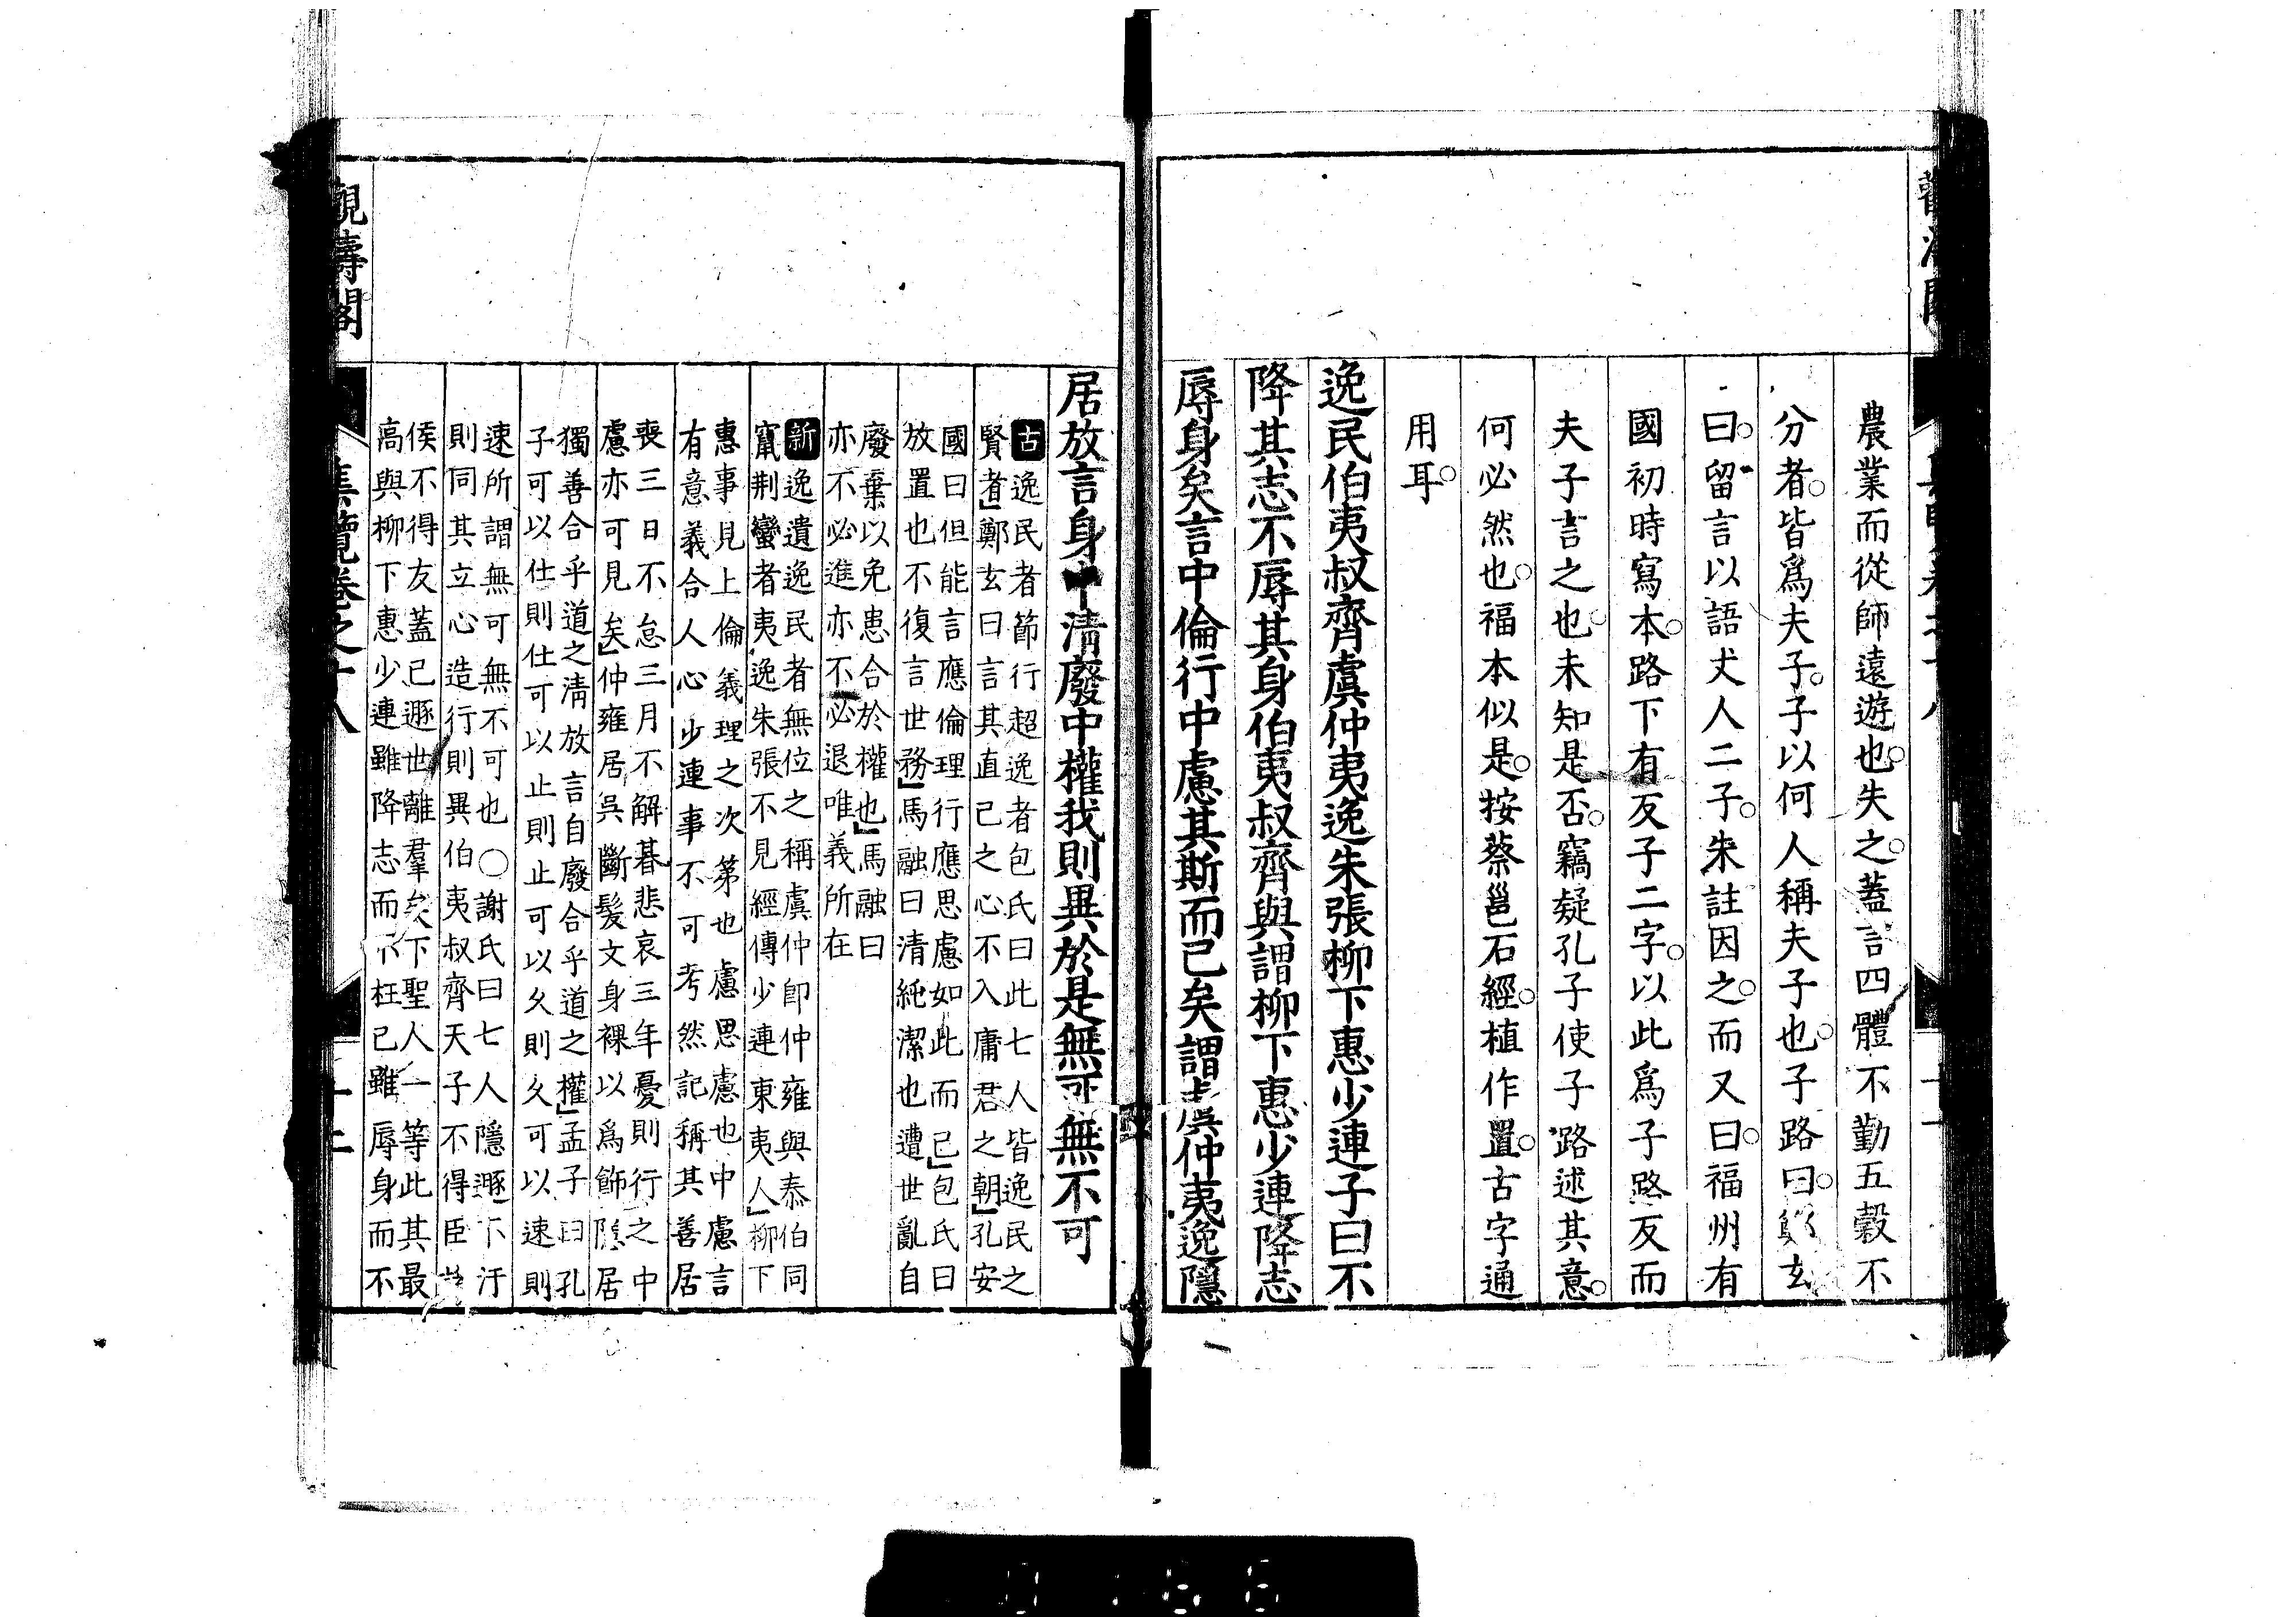 農業而從師遠遊也失之蓋言四體不勤五穀不
分者皆爲夫子子以何人稱夫子也子路曰鄭玄
曰留言以語丈人二子朱註因之而又曰福州有
國初時寫本路下有反子二字以此爲子路反而
夫子言之也未知是否竊疑孔子使子路述其意
何必然也福本似是按蔡邕石經植作置古字通
用耳
逸民伯夷叔齊虞仲夷逸朱張柳下惠少連子曰不
降其志不辱其身伯夷叔齊與謂柳下惠少連降志
辱身矣言中倫行中慮其斯而已矣謂虞仲夷逸隱
居放言身中清廢中權我則異於是無可無不可
古逸民者節行超逸者包氏曰此七人皆逸民之
賢者鄭玄曰言其直己之心不入庸君之朝孔安
國曰但能言應倫理行應思慮如此而已包氏曰
放置也不復言世務馬融曰清純潔也遭世亂自
廢棄以免患合於權也馬融曰
亦不必進亦不必退唯義所在
新逸遺逸民者無位之稱虞仲即仲雍與泰伯同
竄荆蠻者夷逸朱張不見經傳少連東夷人柳下
惠事見上倫義理之次第也慮思慮也中慮言
有意義合人心少連事不可考然記稱其善居
喪三日不怠三月不解朞悲哀三年憂則行之中
慮亦可見矣仲雍居吳斷髮文身裸以爲飾隱居
獨善合乎道之清放言自廢合乎道之權孟子曰孔
子可以仕則仕可以止則止可以久則久可以速則
速所謂無可無不可也○謝氏曰七人隱遯下汙
則同其立心造行則異伯夷叔齊天子不得臣諸
侯不得友蓋已遯世離羣矣下聖人一等此其最
高與柳下惠少連雖降志而不枉己雖辱身而不
觀濤閣
集覽卷之十八